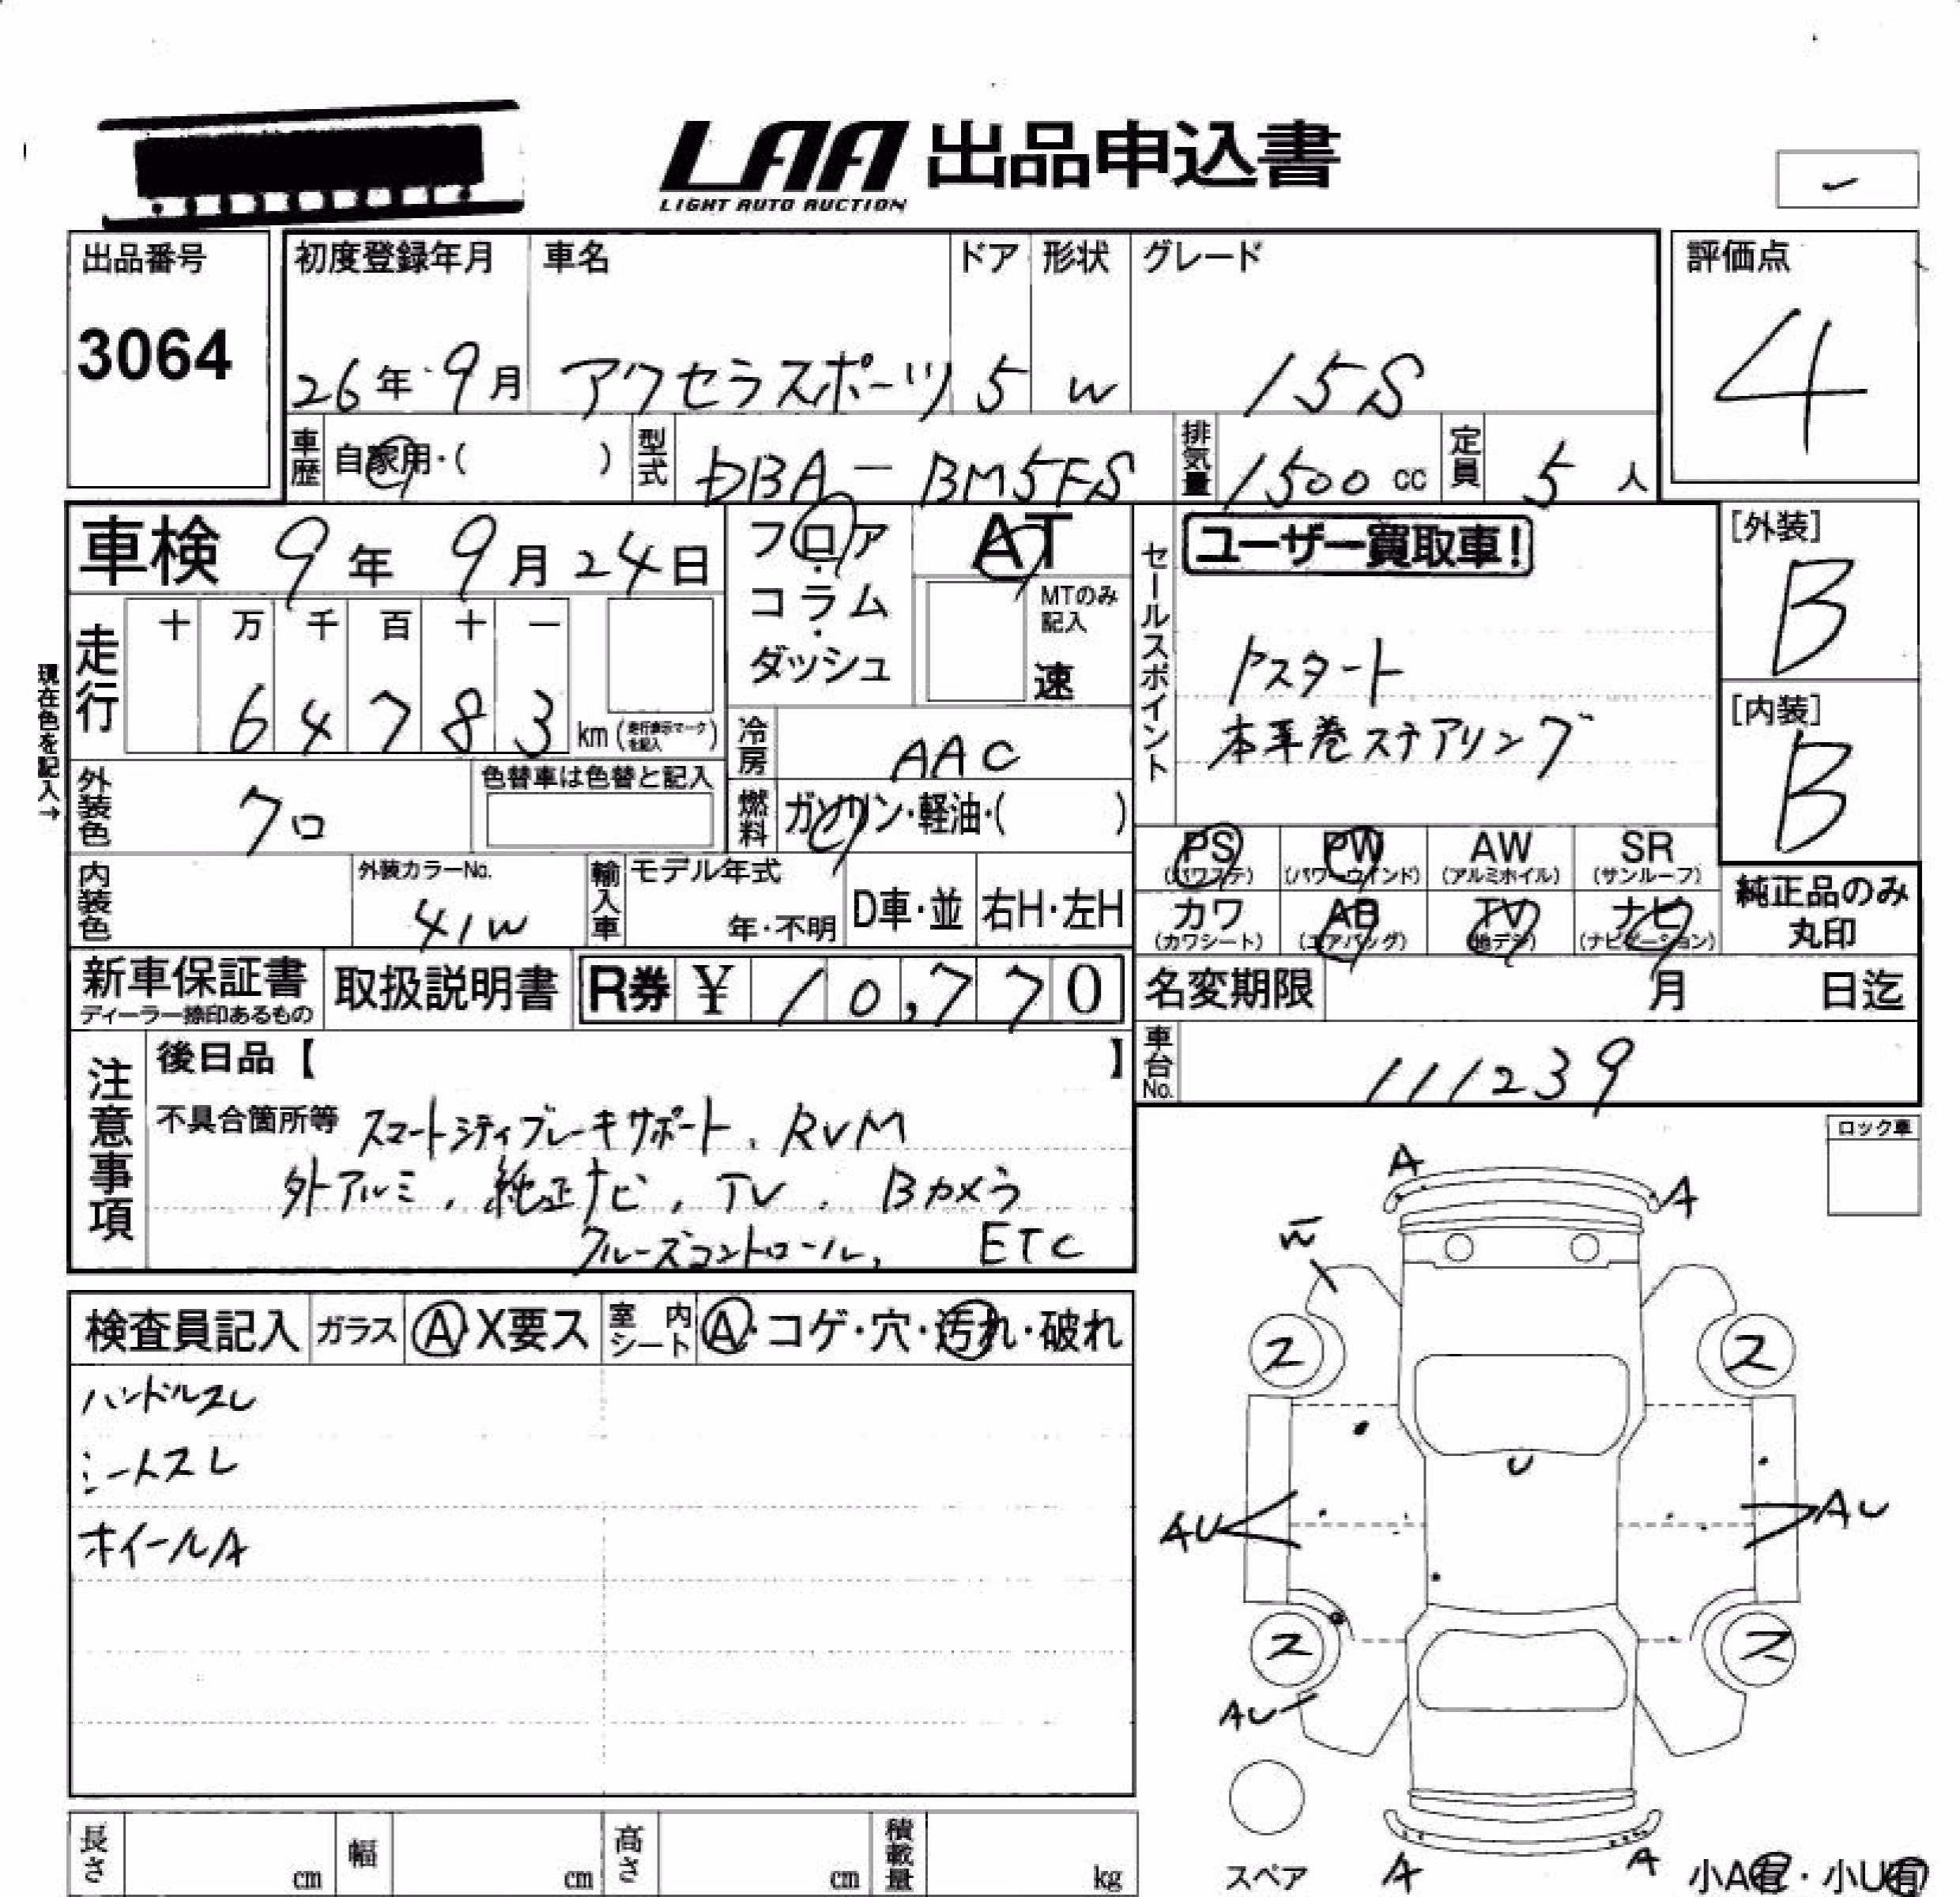 LAA 出品申込書
LIGHT AUTO AUCTION
出品番号
3064
初度登録年月 車名 ドア 形状 グレード
26年 9月 アクセラスポーツ 5 W 15S
評価点
4
車歴 自家用・( ) 型式 DBA-BM5FS 排気量 1500 cc 定員 5 人
車検 9年 9月 24日
フロア・コラム・ダッシュ
AT
MTのみ記入
速
セールスポイント
ユーザー買取車!
Pスタート
本革巻ステアリング
[外装]
B
[内装]
B
現在色を記入→
走行 十 万 千 百 十 一
6 4 7 8 3 km (走行表示マークを記入)
冷房 AAC
燃料 ガソリン・軽油・( )
外装色 クロ
色替車は色替と記入
内装色
外装カラーNo.
41W
輸入車 モデル年式
年・不明
D車・並 右H・左H
PS (パワステ) PW (パワーウインド) AW (アルミホイル) SR (サンルーフ)
カワ (カワシート) AB (エアバッグ) TV (地デジ) ナビ (ナビゲーション)
純正品のみ
丸印
新車保証書
ディーラー捺印あるもの
取扱説明書
R券 ¥ 10,770
名変期限 月 日迄
車台No. 111239
注意事項
後日品【 】
不具合箇所等 スマートシティブレーキサポート、RVM
外アルミ、純正ナビ、TV、Bカメラ
クルーズコントロール、ETC
ロック車
検査員記入 ガラス A・X要ス 室内シート A・コゲ・穴・汚れ・破れ
ハンドルスレ
シートスレ
ホイールA
A
A
W
ス
ス
U
AU
AU
ス
ス
AU
スペア
A
A
小A有・小U有
長さ cm 幅 cm 高さ cm 積載量 kg